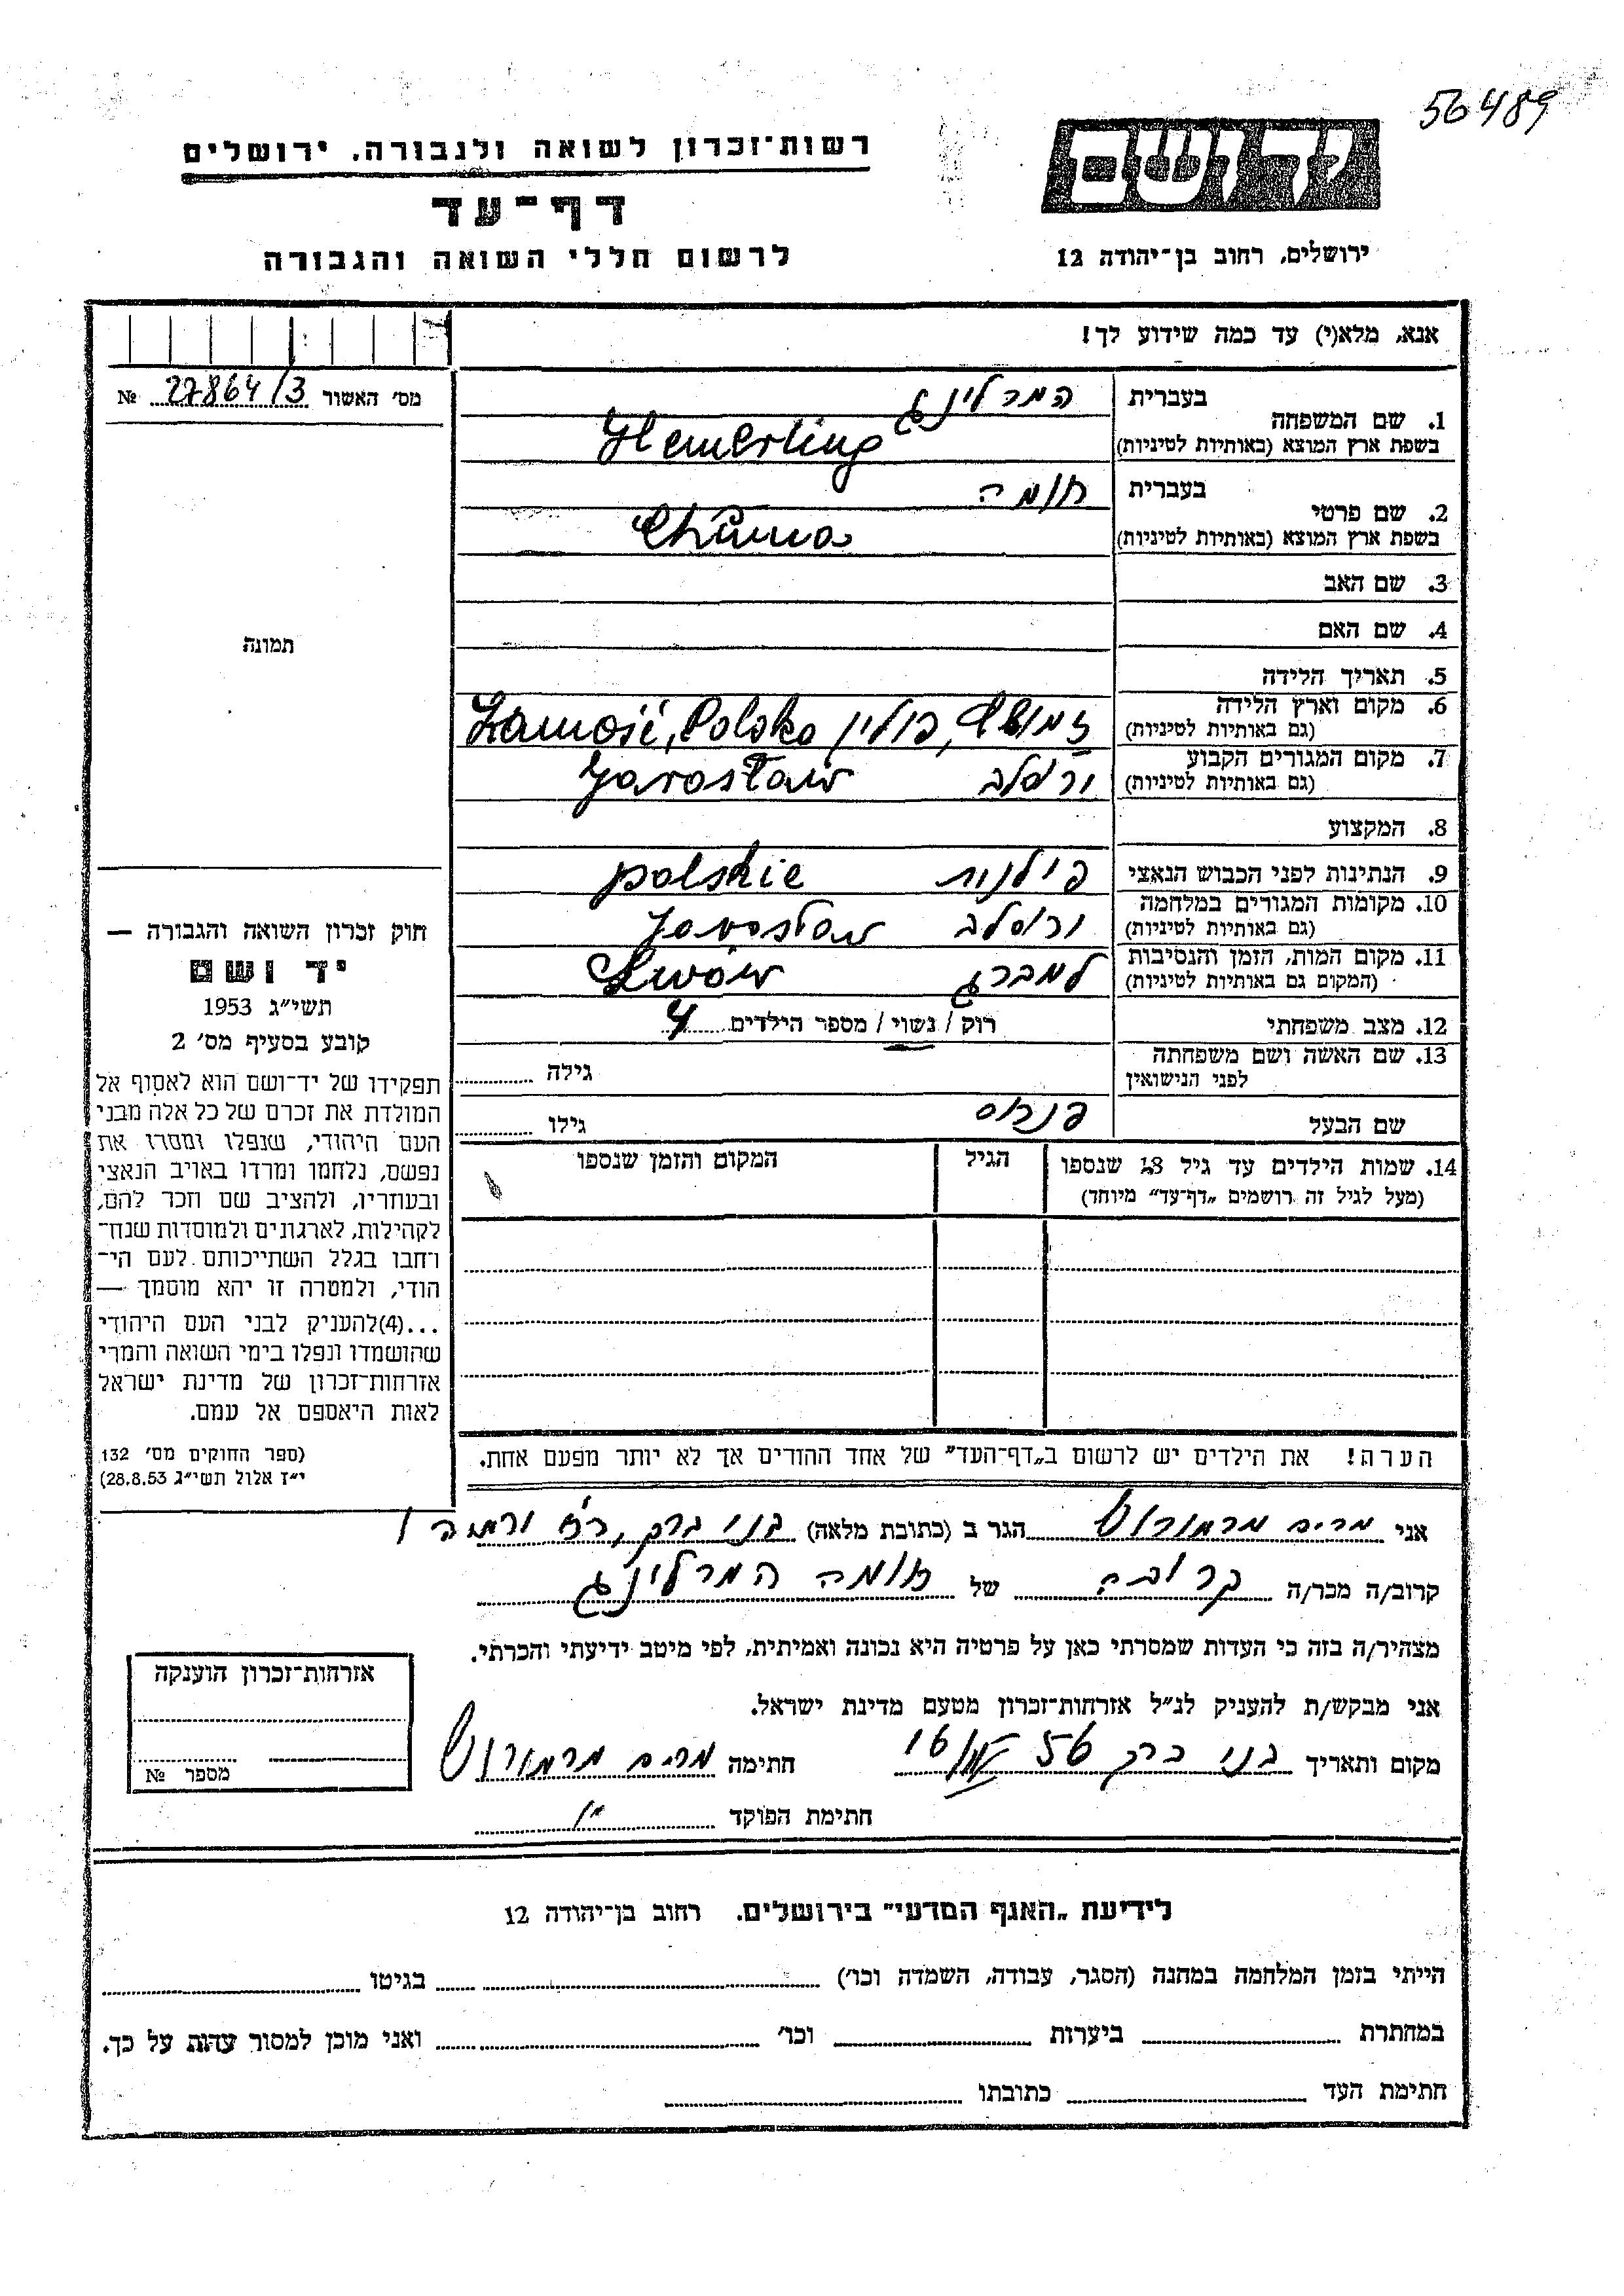 56489
רשות־זכרון לשואה ולגבורה. ירושלים
ידושם
דף־עד
לרשום חללי השואה והגבורה
ירושלים, רחוב בן־יהודה 12
אנא, מלא(י) עד כמה שידוע לך!
מס׳ האשור 27864/3 №
1. שם המשפחה
בעברית המרלינג
בשפת ארץ המוצא (באותיות לטיניות) Hemerling
2. שם פרטי
בעברית חומה
בשפת ארץ המוצא (באותיות לטיניות) Chūma
3. שם האב
4. שם האם
תמונה
5. תאריך הלידה
6. מקום וארץ הלידה
(גם באותיות לטיניות) פולין Zamość, Polska
7. מקום המגורים הקבוע
(גם באותיות לטיניות) ירוסלב Jarosław
8. המקצוע
9. הנתינות לפני הכבוש הנאצי פולנית polskie
10. מקומות המגורים במלחמה
(גם באותיות לטיניות) ירוסלב Jarosław
11. מקום המות, הזמן והנסיבות
(המקום גם באותיות לטיניות) למברג Lwów
12. מצב משפחתי רוק / נשוי / מספר הילדים 4
13. שם האשה ושם משפחתה
לפני הנישואין גילה
שם הבעל פנחס גילו
14. שמות הילדים עד גיל 18 שנספו הגיל המקום והזמן שנספו
(מעל לגיל זה רושמים „דף־עד״ מיוחד)
הערה! את הילדים יש לרשום ב„דף־העד״ של אחד ההורים אך לא יותר מפעם אחת.
חוק זכרון השואה והגבורה —
יד ושם
תשי״ג 1953
קובע בסעיף מס׳ 2
תפקידו של יד־ושם הוא לאסוף אל
המולדת את זכרם של כל אלה מבני
העם היהודי, שנפלו ומסרו את
נפשם, נלחמו ומרדו באויב הנאצי
ובעוזריו, ולהציב שם וזכר להם,
לקהילות, לארגונים ולמוסדות שנח־
רחבו בגלל השתייכותם לעם הי־
הודי, ולמטרה זו יהא מוסמך —
...(4)להעניק לבני העם היהודי
שהושמדו ונפלו בימי השואה והמרי
אזרחות־זכרון של מדינת ישראל
לאות היאספם אל עמם.
(ספר החוקים מס׳ 132
י״ז אלול תשי״ג 28.8.53)
אני מרים הגר ב (כתובת מלאה) בני ברק,
קרוב/ה מכר/ה קרובה של חומה המרלינג
מצהיר/ה בזה כי העדות שמסרתי כאן על פרטיה היא נכונה ואמיתית, לפי מיטב ידיעתי והכרתי.
אני מבקש/ת להעניק לנ״ל אזרחות־זכרון מטעם מדינת ישראל.
מקום ותאריך בני ברק 56 16 חתימה מרים
חתימת הפוקד
אזרחות־זכרון הוענקה
מספר №
לידיעת „האגף המדעי״ בירושלים. רחוב בן־יהודה 12
הייתי בזמן המלחמה במחנה (הסגר, עבודה, השמדה וכו׳) בגיטו
במחתרת ביערות וכו׳ ואני מוכן למסור עדות על כך.
חתימת העד כתובתו